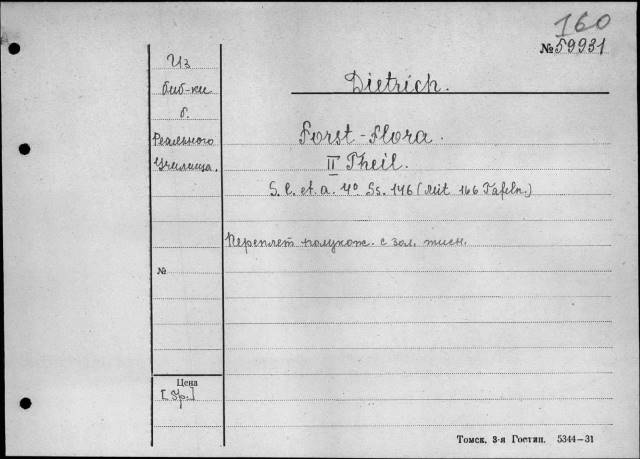 160
№ 59931
Из
биб-ки
б.
Реального
Училища.
Dietrich.
Forst-Flora.
II Theil.
S. l. et. a. 4° Ss. 146 (Mit 166 Tafeln.)
Переплет полукож. с зол. тисн.
№
Цена
[Гр.]
Томск, 3-я Гостип. 5344—31